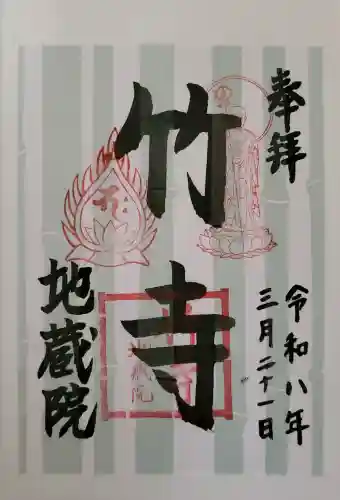 奉拝
令和八年
三月二十一日
竹寺
地蔵院